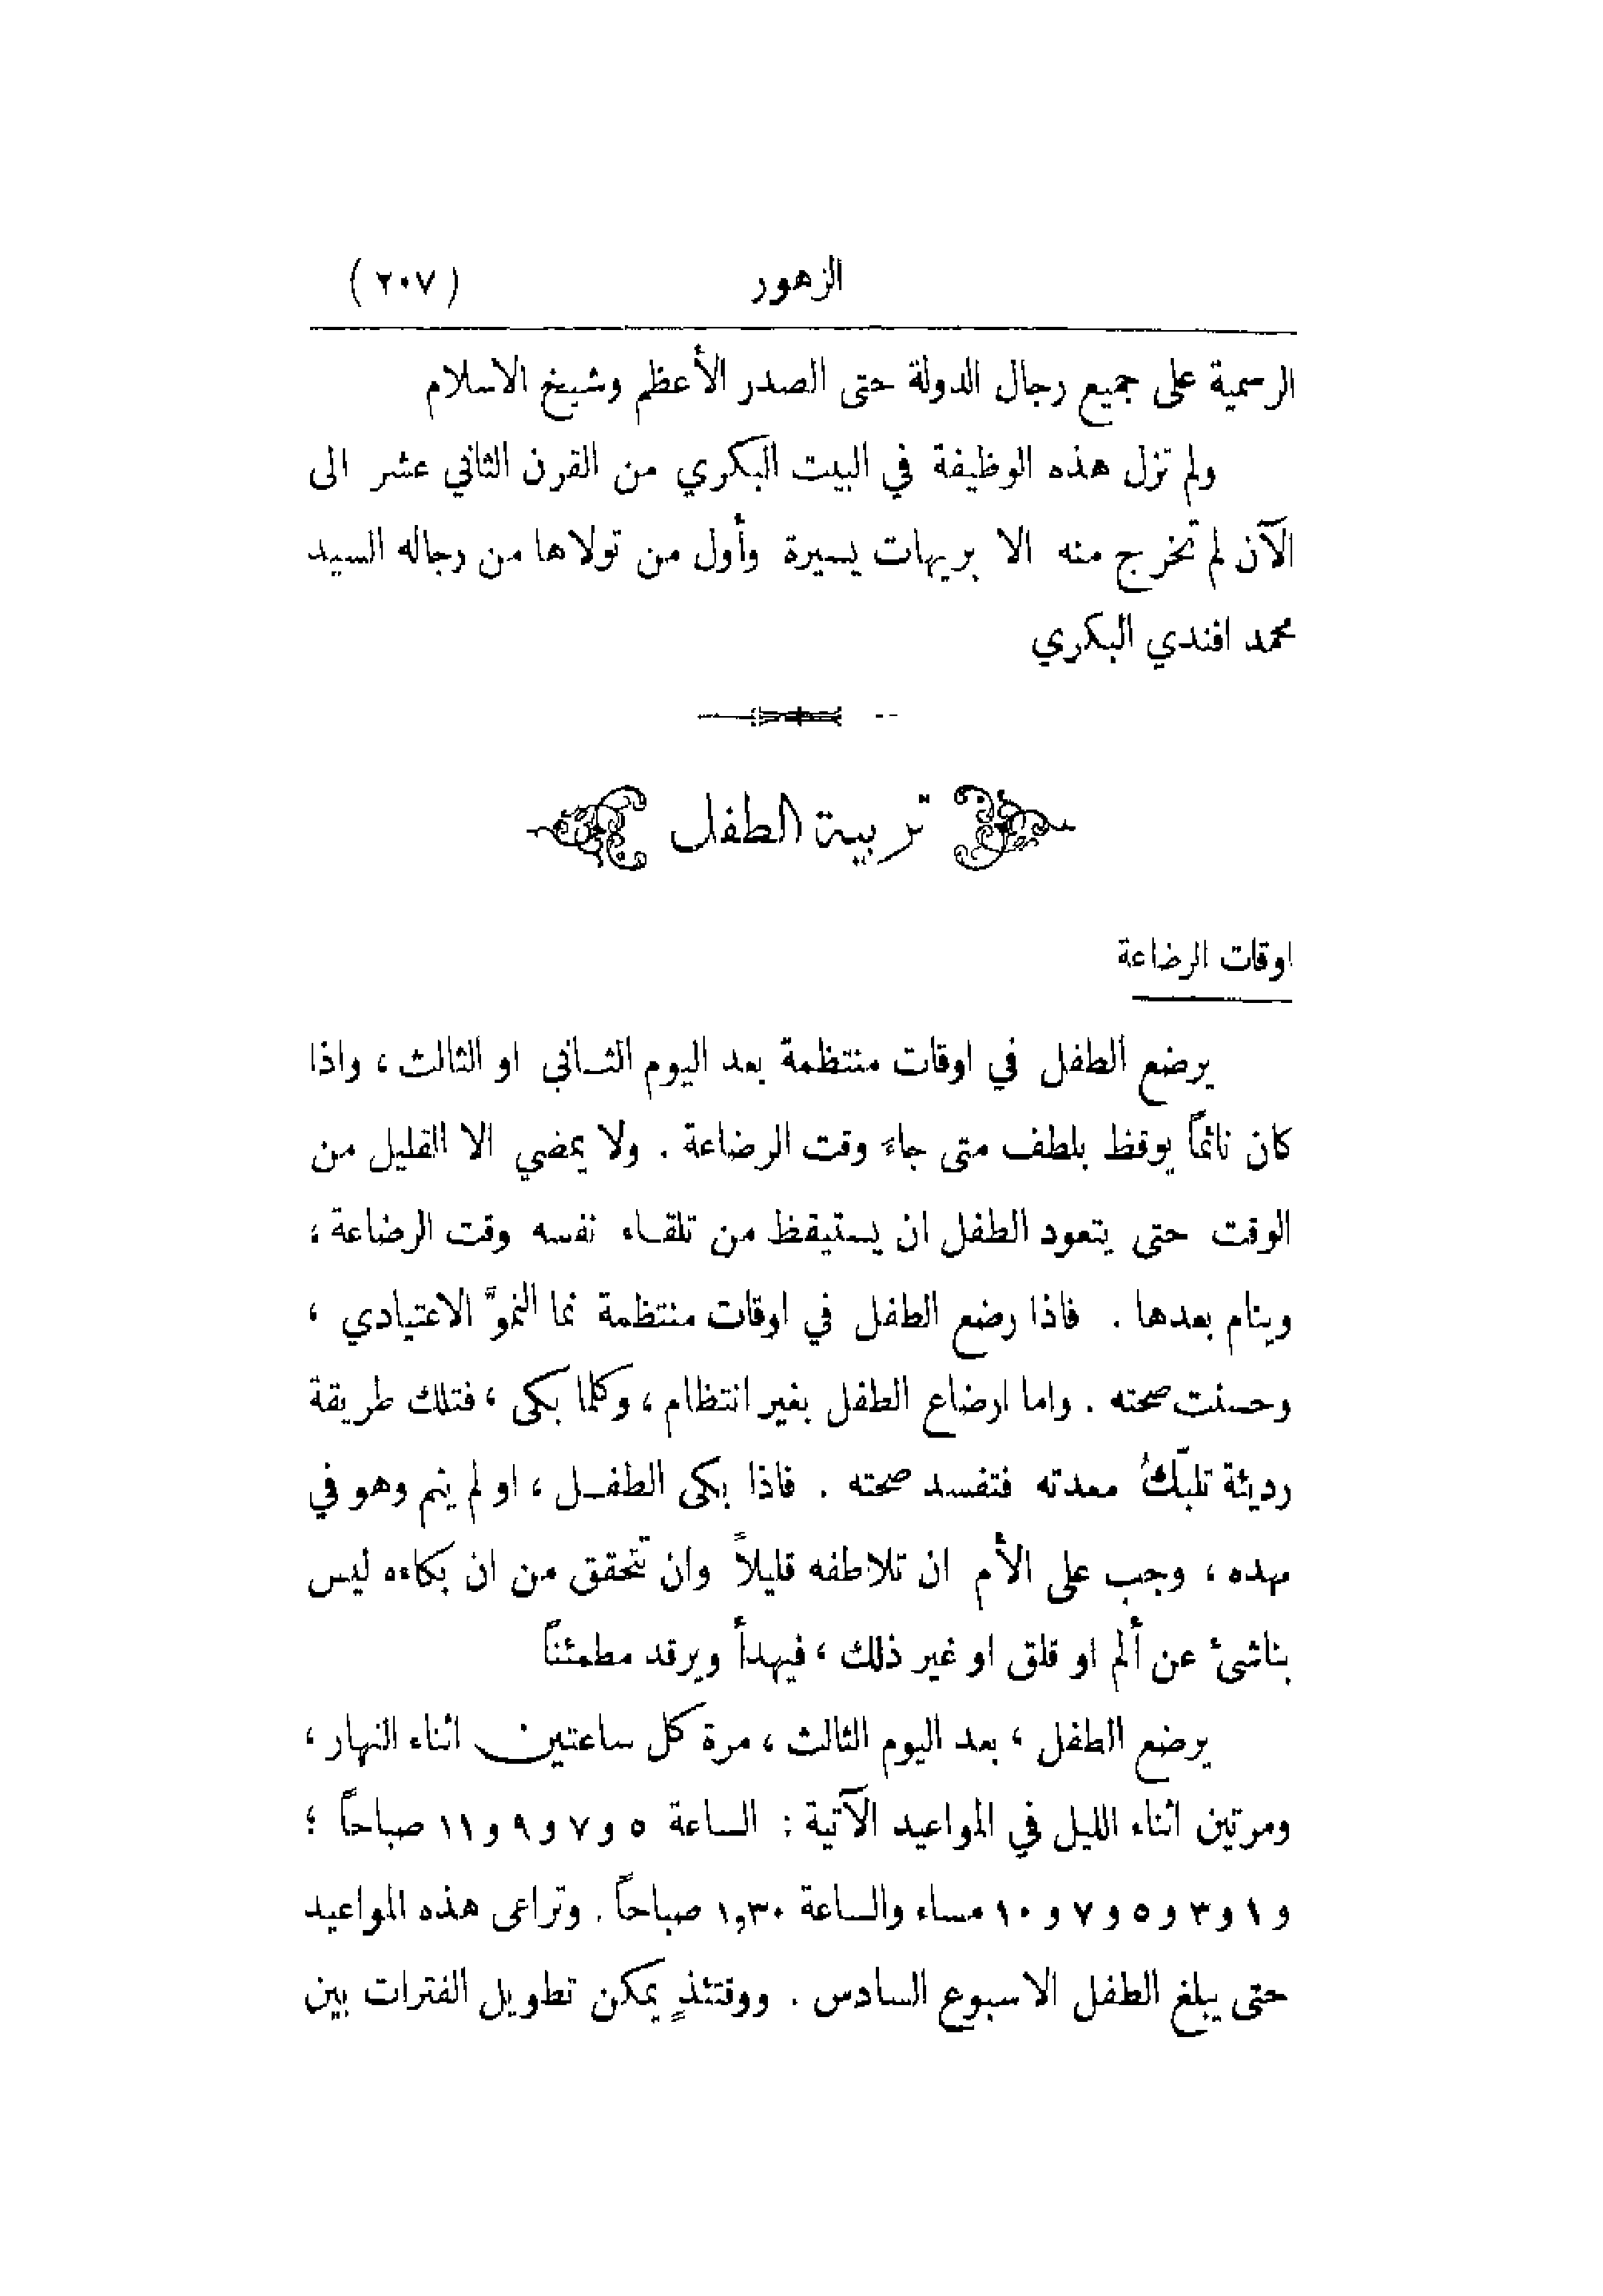 الزهور (٢٠٧)
الرسمية على جميع رجال الدولة حتى الصدر الأعظم وشيخ الاسلام
ولم تزل هذه الوظيفة في البيت البكري من القرن الثاني عشر الى
الآن لم تخرج منه الا بريهات يسيرة وأول من تولاها من رجاله السيد
محمد افندي البكري
تربية الطفل
اوقات الرضاعة
يرضع الطفل في اوقات منتظمة بعد اليوم الثاني او الثالث ، واذا
كان نائمًا يوقظ بلطف متى جاء وقت الرضاعة . ولا يمضي الا القليل من
الوقت حتى يتعود الطفل ان يستيقظ من تلقاء نفسه وقت الرضاعة ،
وينام بعدها . فاذا رضع الطفل في اوقات منتظمة نما النموَّ الاعتيادي ،
وحسنت صحته . واما ارضاع الطفل بغير انتظام ، وكلما بكى ، فتلك طريقة
رديئة تلبّكُ معدته فتفسد صحته . فاذا بكى الطفل ، او لم ينم وهو في
مهده ، وجب على الأم ان تلاطفه قليلاً وان تتحقق من ان بكاءه ليس
بناشئ عن ألم او قلق او غير ذلك ، فيهدأ ويرقد مطمئنًا
يرضع الطفل ، بعد اليوم الثالث ، مرة كل ساعتين اثناء النهار ،
ومرتين اثناء الليل في المواعيد الآتية : الساعة ٥ و ٧ و ٩ و ١١ صباحًا ؛
و ١ و ٣ و ٥ و ٧ و ١٠ مساء والساعة ١,٣٠ صباحًا . وتراعى هذه المواعيد
حتى يبلغ الطفل الاسبوع السادس . ووقتئذٍ يمكن تطويل الفترات بين